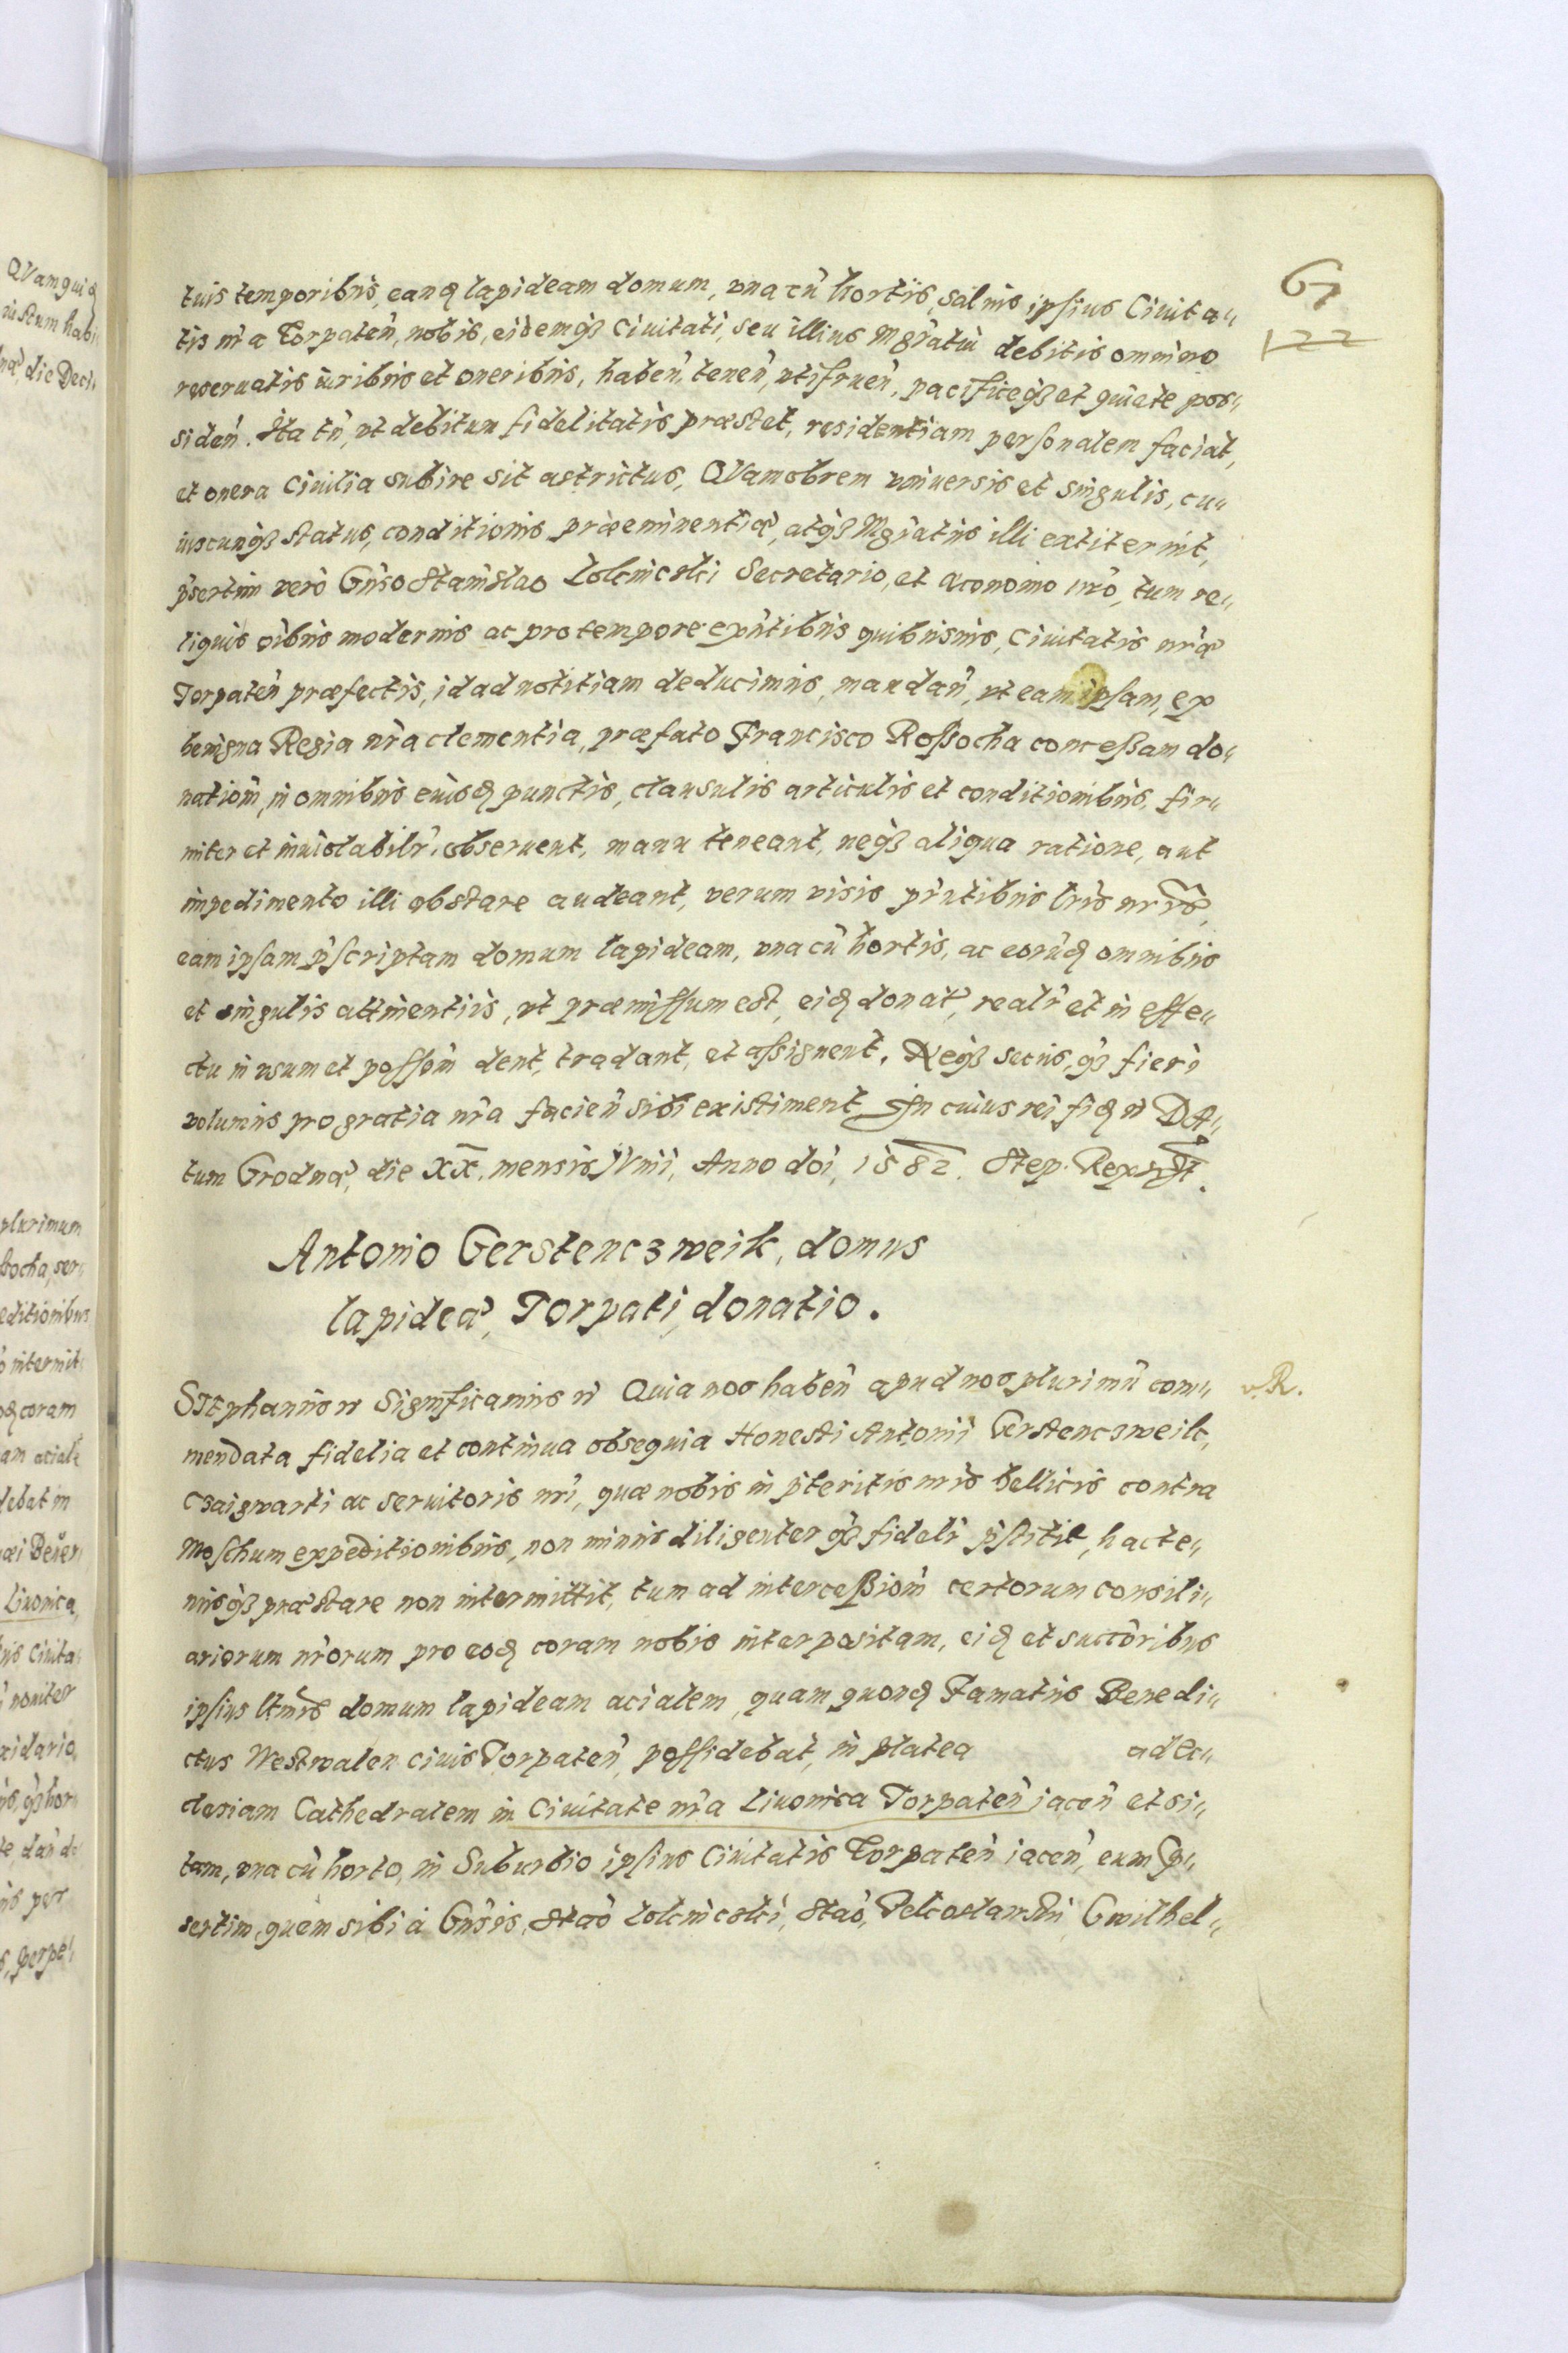 67
122
tuis temporibus, eandem lapideam domum, vna cũ hortis, saluis ipsius Ciuita„
tis nr̃a Torpateñ, nobis, eidemqȝ Ciuitati, seu illius Mgr̃atui debitis omnino
reseruatis iuribus et oneribus, habeñ, teneñ, vtifrueñ, pacificeqȝ et quiete pos„
sideñ. Ita tñ, vt debitum fidelitatis præstet, residentiam personalem faciat,
et onera Ciuilia subire sit astrictus, QVamobrem vniuersis et singulis, cu„
iuscunqȝ status, conditionis præeminentiæ, atqȝ Mgr̃atus illi extiterint,
p̃sertim verò Gñso Stanislao Lokniczki Secretario, et œconomo nr̃o, tum re„
liquis oĩbus modernis ac pro tempore exñtibus quibusuis, Ciuitatis nr̃æ
Torpateñ præfectis, id ad notitiam deducimus, mandañ, vt eam ipsam, ex
benigna Regia nr̃a clementia, præfato Francisco Rossocha concessam do„
natioñ, in omnibus eiusdꝫ punctis, clausulis articulis et conditionibus, fir„
miter et inuiolabilr̃ obseruent, manu teneant, neqȝ aliqua ratione, aut
impedimento illi obstare audeant, verum visis pr̃ntibus lr̃is nr̃is,
eam ipsam p̃scriptam domum lapideam, vna cũ hortis, ac eorũdꝫ omnibus
et singulis attinentiis, vt præmissum est, eidꝫ donatæ, realr̃ et in effe„
ctu in vsum et possõm dent, tradant, et assignent. Neqȝ secus, qȝ fieri
volumus pro gratia nr̃a facieñ sibi existiment In cuius rei fidꝫ etc̃ DA„
tum Grodnæ, die XX. mensis IVnii, Anno doĩ, 1582. Step. Rex sst.
Antonio Gerstenczweik, domus
lapideæ, Torpati, donatio.
v. R.
STEphanus etc̃ Significamus etc̃ Quia nos habeñ apud nos plurimũ com„
mendata fidelia et continua obsequia Honesti Antonii Gerstenczweik,
Czaigwarti ac seruitoris nr̃i, quæ nobis in p̃teritis nr̃is bellicis contra
Moschum expeditionibus, non minus diligenter qȝ fidelr̃ p̃stitit, hacte„
nusqȝ præstare non intermittit, tum ad intercessioñ certorum consili„
ariorum nr̃orum pro eodꝫ coram nobis interpositam, eidꝫ et succõribus
ipsius ltm̃is domum lapideam acialem, quam quondꝫ Famatus Benedi„
ctus Westwalen ciuis Torpateñ, possidebat, in platea ad ec„
clesiam Cathedralem in Ciuitate nr̃a Liuonica Torpateñ iaceñ et si„
tam, vna cũ horto, in Suburbio ipsius Ciuitatis Torpateñ iaceñ, eum p̃„
sertim, quem sibi à Gñsis, Stao Lokniczki, Stao, Pekoslawski, Gwilhel„